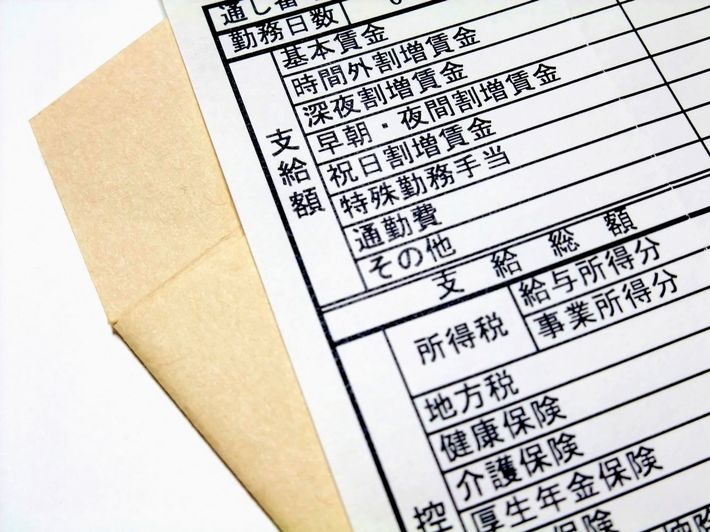 通し番
勤務日数
基本賃金
時間外割増賃金
深夜割増賃金
早朝・夜間割増賃金
祝日割増賃金
特殊勤務手当
通勤費
その他
支給額
支給総額
所得税
給与所得分
事業所得分
地方税
健康保険
介護保険
厚生年金保険
控